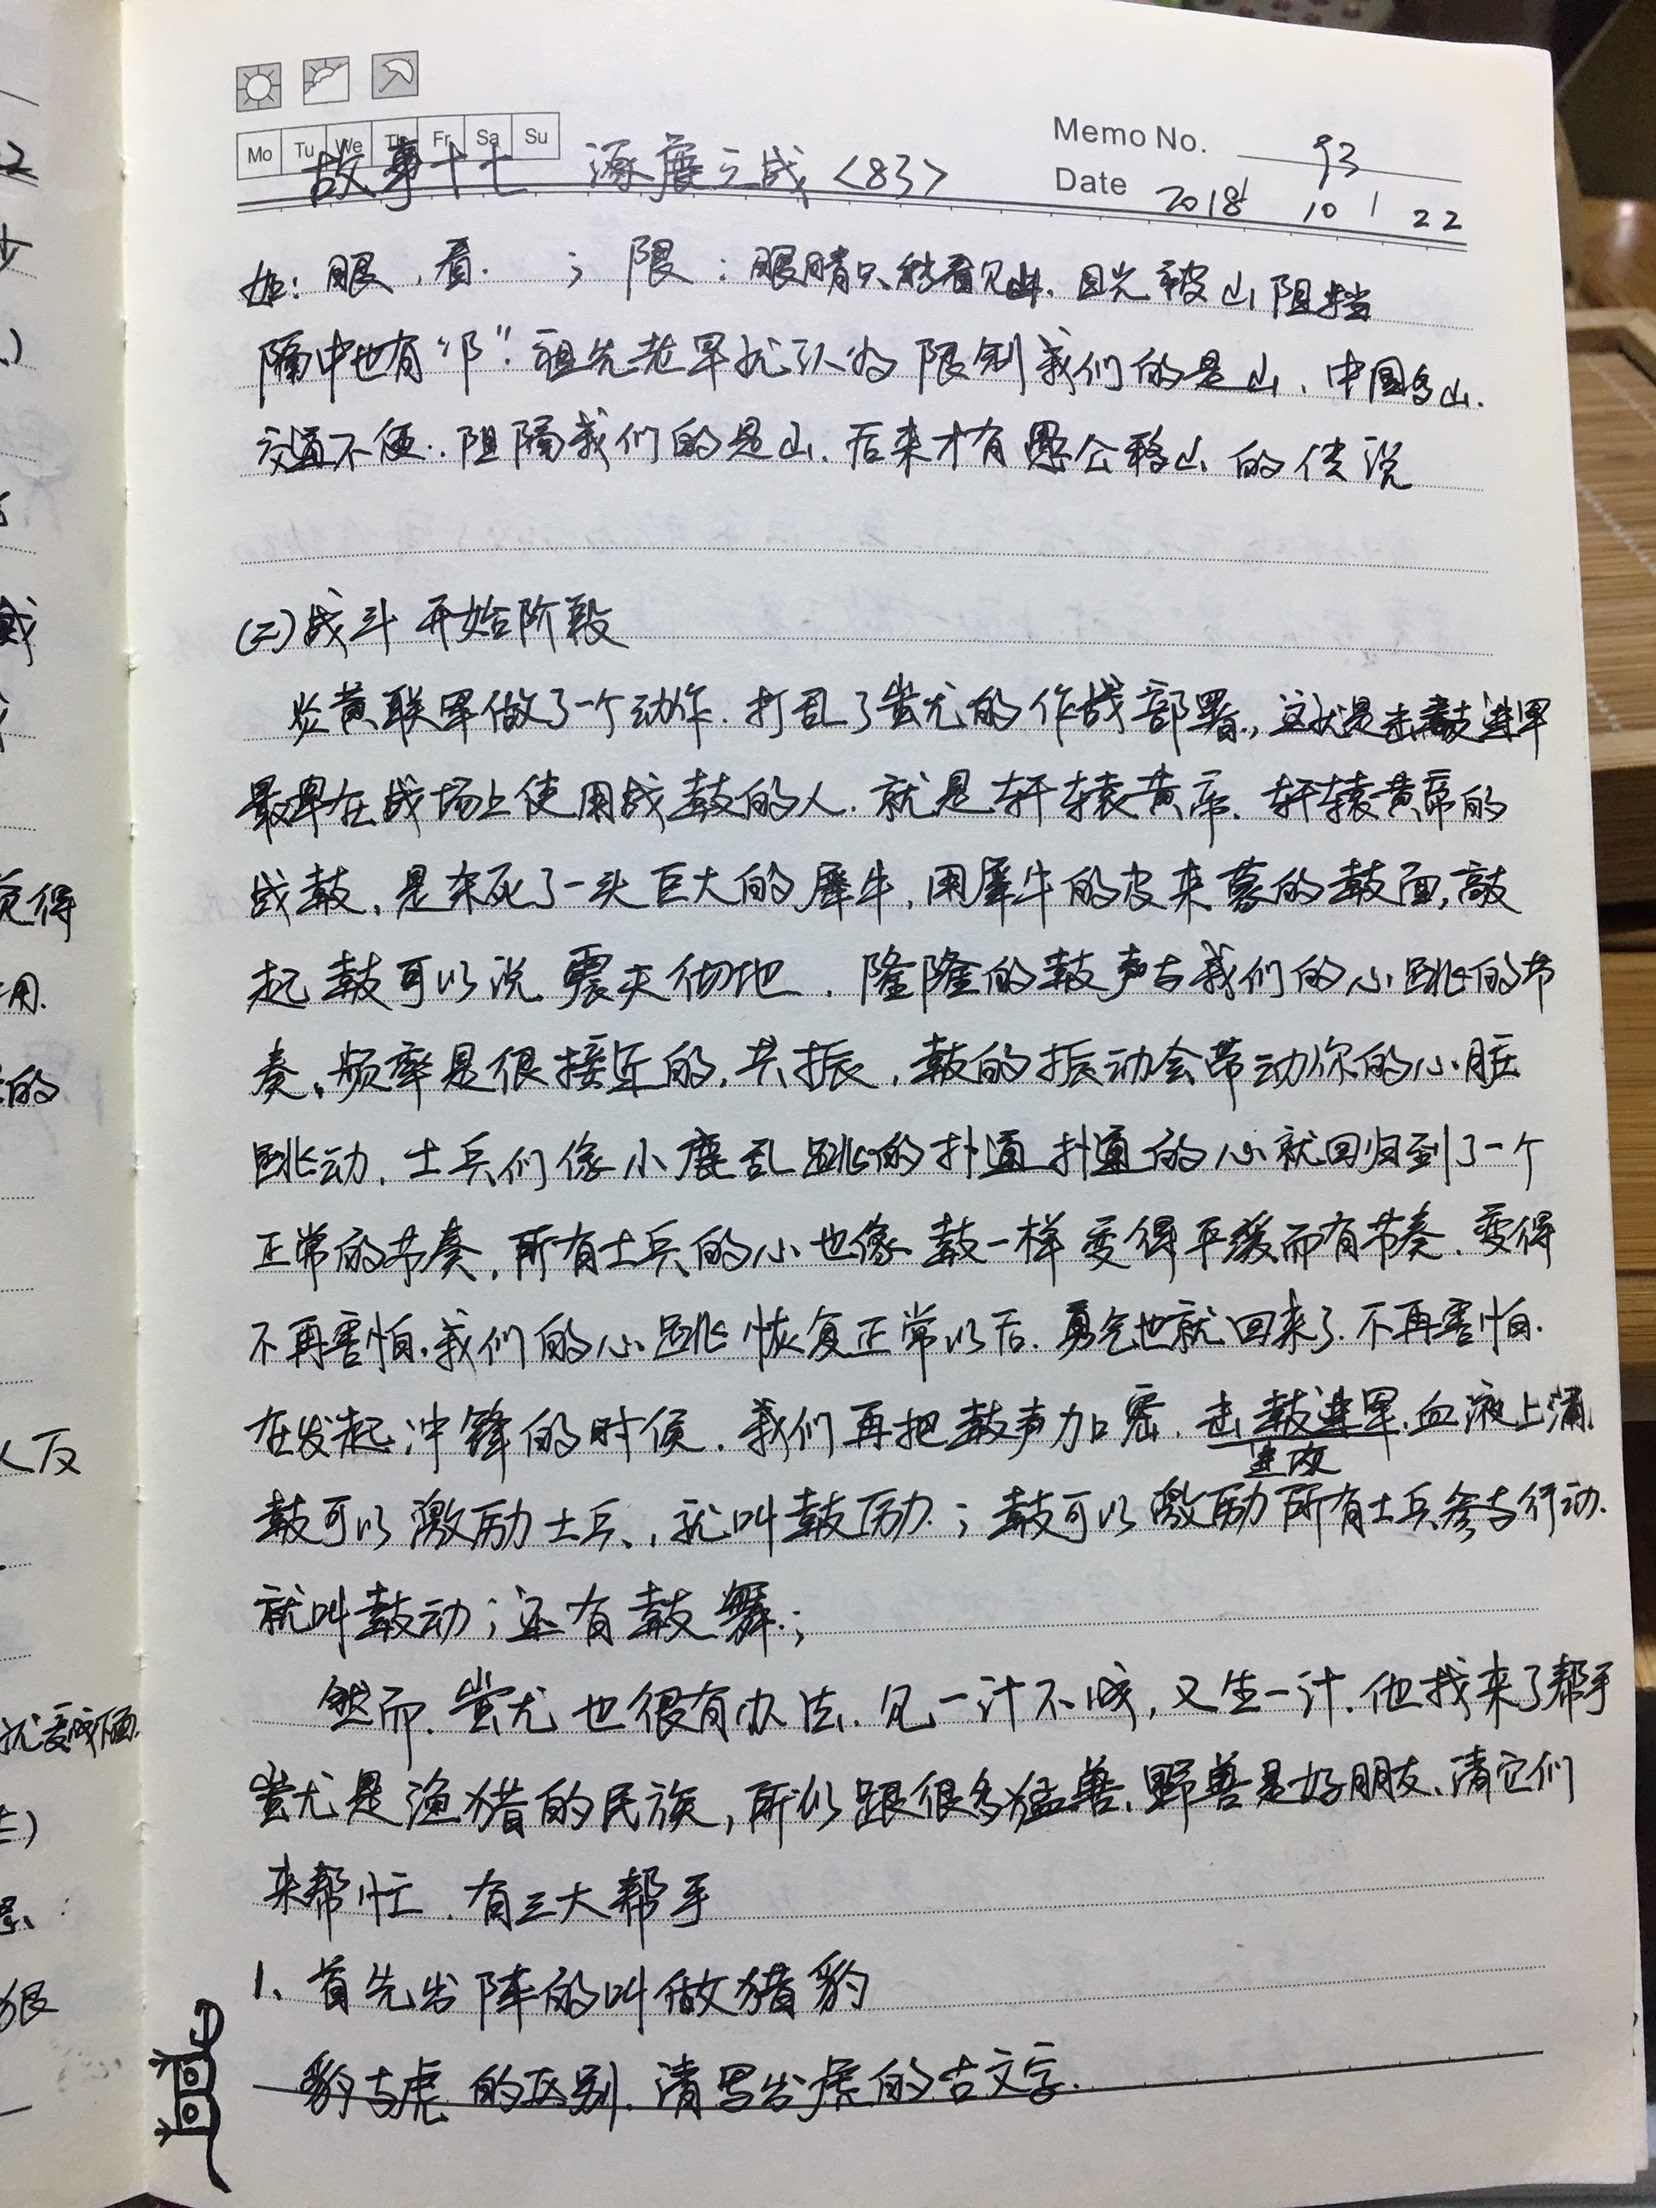 Mo Tu We Th Fr Sa Su
Memo No. 93
故事十七 涿鹿之战<83>
Date 2018 10 22
如：眼，看. ；限：眼睛只能看见山，目光被山阻挡
隔中也有“阝”. 祖先老早就认为限制我们的是山、中国多山.
交通不便.. 阻隔我们的是山. 后来才有愚公移山的传说
(二)战斗开始阶段
炎黄联军做了一个动作. 打乱了蚩尤的作战部署., 这就是击鼓进军
最早在战场上使用战鼓的人. 就是轩辕黄帝. 轩辕黄帝的
战鼓, 是杀死了一头巨大的犀牛, 用犀牛的皮来蒙的鼓面, 敲
起鼓可以说震天彻地. 隆隆的鼓声与我们的心跳的节
奏、频率是很接近的. 共振, 鼓的振动会带动你的心脏
跳动. 士兵们像小鹿乱跳的扑通扑通的心就回归到了一个
正常的节奏, 所有士兵的心也像鼓一样变得平缓而有节奏. 变得
不再害怕. 我们的心跳恢复正常以后. 勇气也就回来了. 不再害怕.
在发起冲锋的时候. 我们再把鼓声加密. 击鼓进军. 血液上涌.
进攻
鼓可以激励士兵, 就叫鼓励. ; 鼓可以激励所有士兵参与行动.
就叫鼓动; 还有鼓舞. ;
然而. 蚩尤也很有办法. 见一计不成, 又生一计. 他找来了帮手
蚩尤是渔猎的民族, 所以跟很多猛兽、野兽是好朋友、请它们
来帮忙. 有三大帮手
1、首先出阵的叫做猎豹
豹与虎的区别. 请写出虎的古文字.